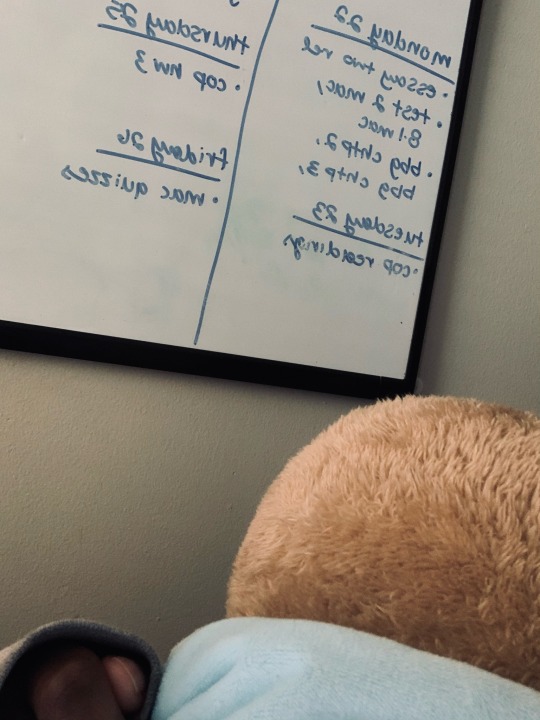 monday 22
• essay two rel
• test 2 mac,
8.1 mac
• bbg chtp 2,
bbg chtp 3,
tuesday 23
• cop readings
thursday 25
• cop hw 3
friday 26
• mac quizzes